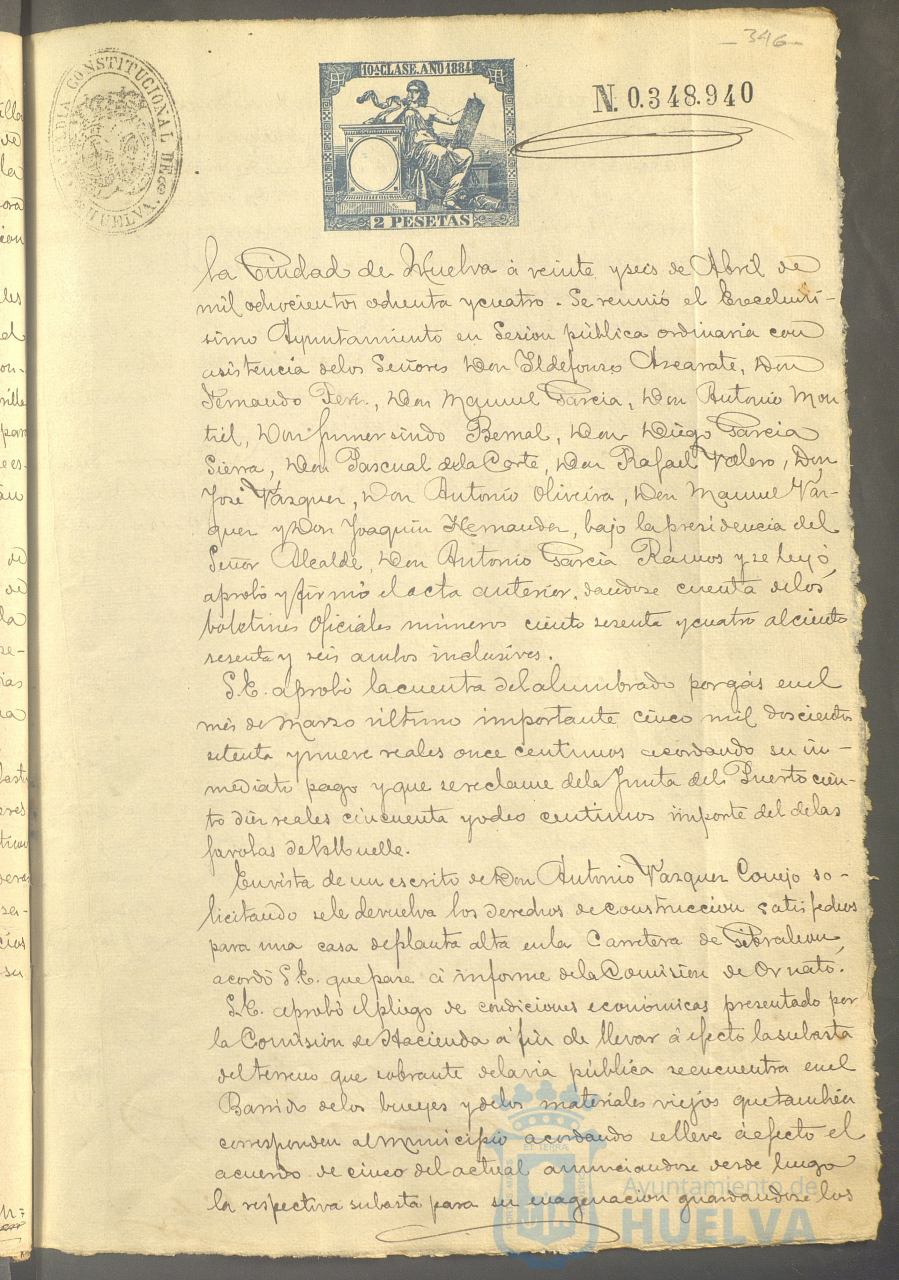 -346-
ALCALDIA CONSTITUCIONAL DE HUELVA
10ª CLASE. AÑO 1884
N. 0.348.940
2 PESETAS
la Ciudad de Huelva á veinte y seis de Abril de
mil ochocientos ochenta y cuatro. Se reunió el Excelentí-
simo Ayuntamiento en Sesion pública ordinaria con
asistencia de los Señores Don Ildefonso Azcarate, Don
Fernando Ferr., Don Manuel Garcia, Don Antonio Mon
tiel, Don Gumersindo Bernal, Don Diego Garcia
Sierra, Don Pascual de la Corte, Don Rafael Valero, Don
José Vazquez, Don Antonio Oliveira, Don Manuel Váz-
quez y Don Joaquin Hernandez, bajo la presidencia del
Señor Alcalde, Don Antonio García Ramos y se leyó,
aprobó y firmó el acta anterior, dandose cuenta de los
boletines oficiales números ciento sesenta y cuatro al ciento
sesenta y seis ambos inclusives.
S.E. aprobó la cuenta del alumbrado por gás en el
més de Marzo último importante cinco mil doscientos
setenta y nueve reales once centimos acordando su in-
mediato pago y que se reclame de la Junta del Puerto cien-
to diez reales cincuenta y odeo centimos importe del de las
farolas del Muelle.
En vista de un escrito de Don Antonio Vazquez Conejo so-
licitando se le devuelva los derechos de construccion satisfechos
para una casa de planta alta en la Carretera de Gibraleon,
acordó S.E. que pase á informe de la Comision de Ornato.
S.E. aprobó el pliego de condiciones económicas presentado por
la Comision de Hacienda á fin de llevar á efecto la subasta
del terreno que sobrante de la via pública se encuentra en el
Barrido de los bueyes y de los materiales viejos que tambien
corresponden al municipio acordando se lleve á efecto el
acuerdo de cinco del actual anunciandose desde luego
la respectiva subasta para su enagenacion guardandose los
Ayuntamiento de
HUELVA